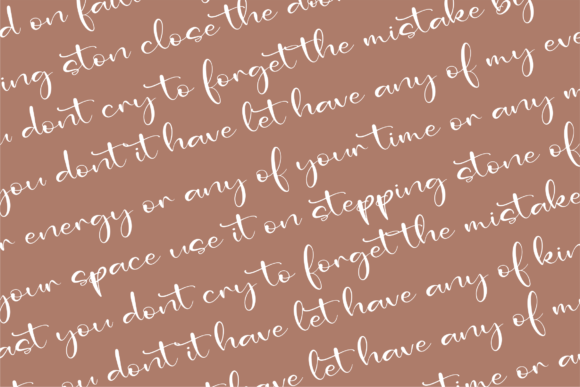 d on fail
ing ston close the doo
u dont cry to forget the mistake by
you dont it have let have any of my eve
r energy or any of your time or any m
your space use it on stepping stone of
ast you dont cry to forget the mistake
you dont it have let have any of kin
have let have any of m
time or a